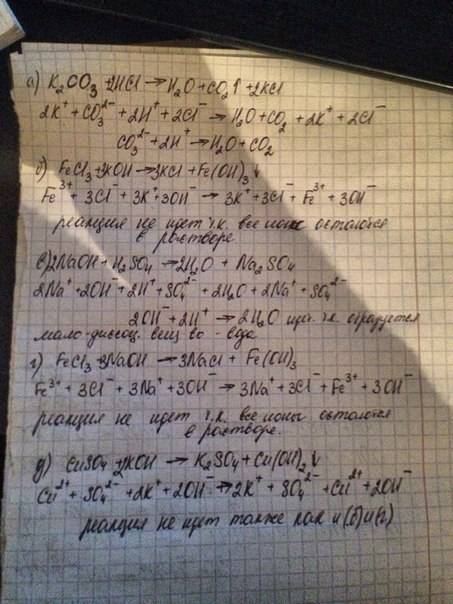 а) K₂CO₃ + 2HCl → H₂O + CO₂↑ + 2KCl
2K⁺ + CO₃²⁻ + 2H⁺ + 2Cl⁻ → H₂O + CO₂ + 2K⁺ + 2Cl⁻
CO₃²⁻ + 2H⁺ → H₂O + CO₂
б) FeCl₃ + 3KOH → 3KCl + Fe(OH)₃↓
Fe³⁺ + 3Cl⁻ + 3K⁺ + 3OH⁻ → 3K⁺ + 3Cl⁻ + Fe³⁺ + 3OH⁻
реакция не идет т.к. все ионы остаются
в растворе
в) 2NaOH + H₂SO₄ → 2H₂O + Na₂SO₄
2Na⁺ + 2OH⁻ + 2H⁺ + SO₄²⁻ → 2H₂O + 2Na⁺ + SO₄²⁻
2OH⁻ + 2H⁺ → 2H₂O идет т.к. образуется
мало-диссоц. вещ во - вода
г) FeCl₃ + 3NaOH → 3NaCl + Fe(OH)₃
Fe³⁺ + 3Cl⁻ + 3Na⁺ + 3OH⁻ → 3Na⁺ + 3Cl⁻ + Fe³⁺ + 3OH⁻
реакция не идет т.к. все ионы остаются
в растворе.
д) CuSO₄ + 2KOH → K₂SO₄ + Cu(OH)₂↓
Cu²⁺ + SO₄²⁻ + 2K⁺ + 2OH⁻ → 2K⁺ + SO₄²⁻ + Cu²⁺ + 2OH⁻
реакция не идет также как и (б) и (г)